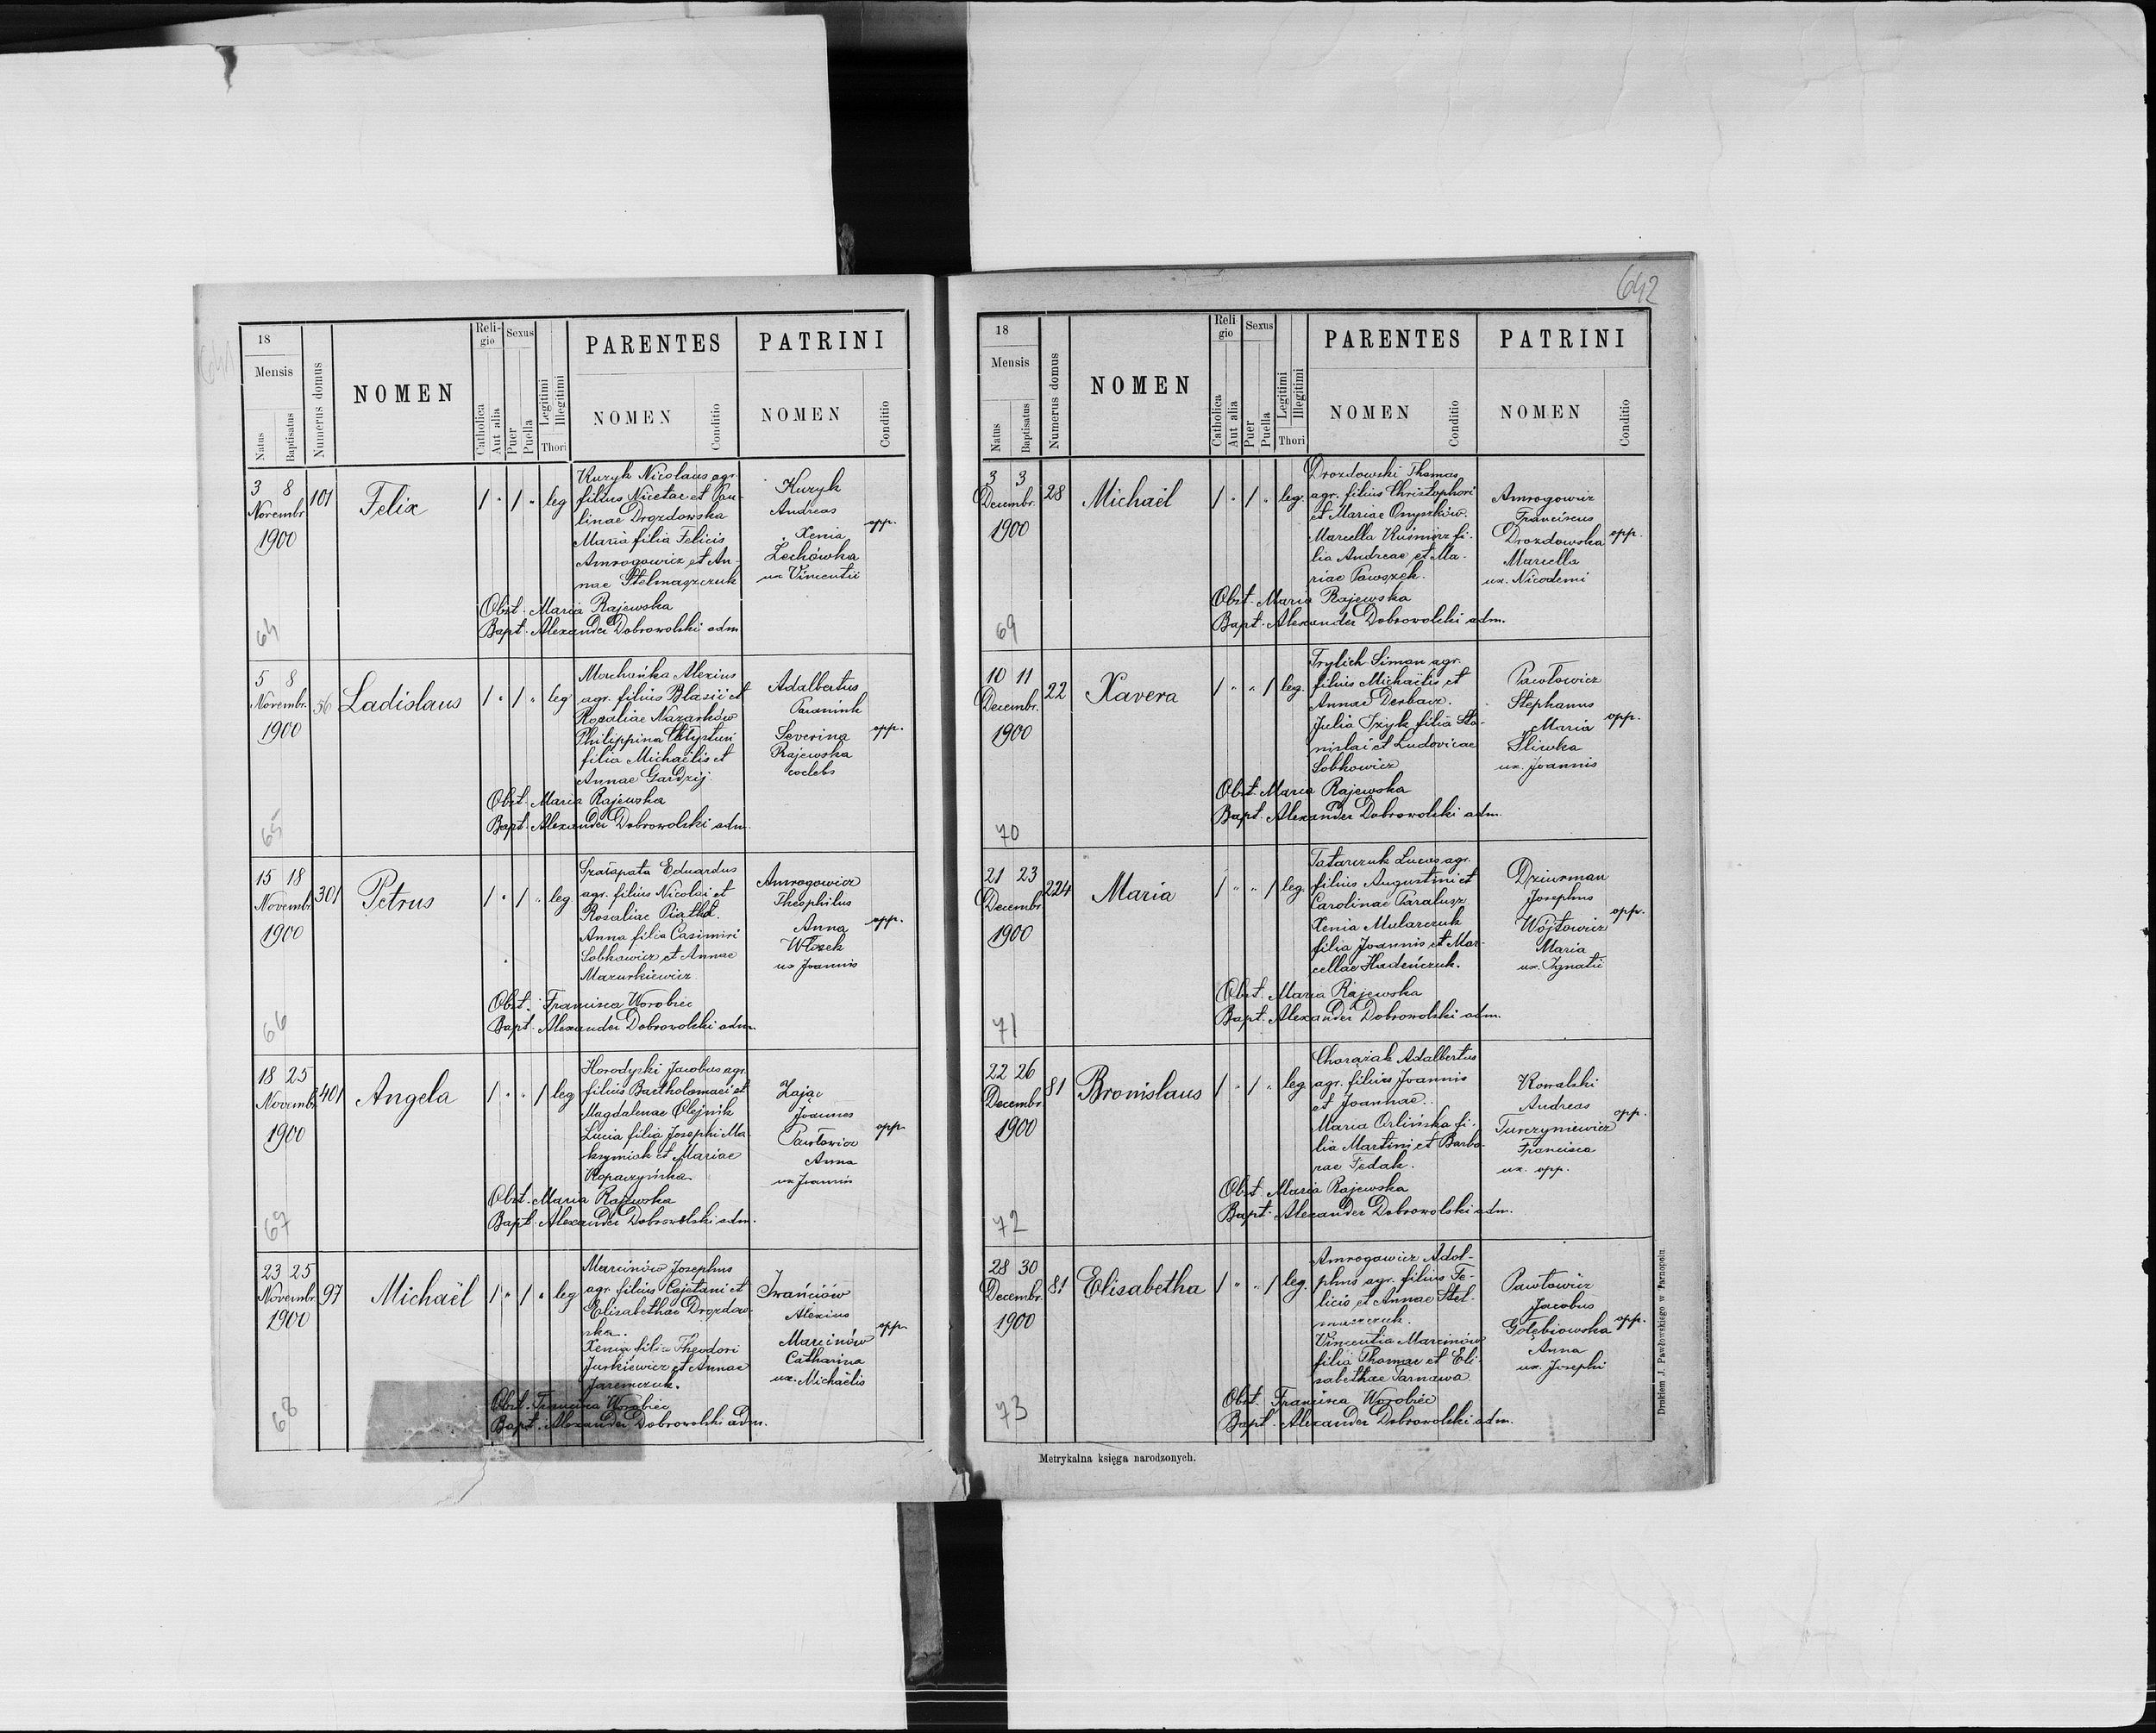 641
18
Mensis
Natus
Baptisatus
Numerus domus
NOMEN
Reli-
gio
Catholica
Aut alia
Sexus
Puer
Puella
Legitimi
Illegitimi
Thori
PARENTES
NOMEN
Conditio
PATRINI
NOMEN
Conditio
3 8
Novembr.
1900
101
Felix
/ " / " leg
Kuzyk Nicolaus agr.
filius Nicetae et Pau-
linae Drozdowska
Maria filia Felicis
Amrogowicz et An-
nae Stelmaszczuk
Kuzyk
Andreas
Xenia
Lechówka
ux Vincentii
opp.
Obst. Maria Rajewska
Bapt. Alexander Dobrowolski adm
64
5 8
Novembr.
1900
56
Ladislaus
/ " / " leg
Alexius
agr. filius Blasii et
Rozaliae Nazarków
Philippina
filia Michaëlis et
Annae Gardzij
Adalbertus
Severina
Rajewska
coelebs
opp.
Obst. Maria Rajewska
Bapt. Alexander Dobrowolski adm.
65
15 18
Novembr.
1900
301
Petrus
/ " / " leg
Eduardus
agr. filius Nicolai et
Rosaliae
Anna filia Casimiri
Sobkowicz et Annae
Mazurkiewicz
Amrogowicz
Theophilus
Anna
Włozek
ux Joannis
opp.
Obst. Francisca Worobiec
Bapt. Alexander Dobrowolski adm.
66
18 25
Novembr.
1900
401
Angela
/ " " / leg
Horodyski Jacobus agr.
filius Bartholomaei et
Magdalenae Olejnik
Lucia filia Josephi Ma-
ksymiak et Mariae
Kopaczyńska
Zając
Joannes
Pawłowicz
Anna
ux Joannis
opp.
Obst. Maria Rajewska
Bapt. Alexander Dobrowolski adm.
67
23 25
Novembr.
1900
97
Michaël
/ " / " leg
Marcinów Josephus
agr. filius Cajetani et
Elisabethae Drozdow-
ska.
Xenia filia Theodori
Jurkiewicz et Annae
Jaremczuk.
Iwańciów
Alexius
Marcinów
Catharina
ux. Michaëlis
opp.
Obst. Francisca Worobiec
Bapt. Alexander Dobrowolski adm.
68
642
18
Mensis
Natus
Baptisatus
Numerus domus
NOMEN
Reli
gio
Catholica
Aut alia
Sexus
Puer
Puella
Legitimi
Illegitimi
Thori
PARENTES
NOMEN
Conditio
PATRINI
NOMEN
Conditio
3 3
Decembr.
1900
28
Michaël
/ " / " leg.
Drozdowski Thomas
agr. filius Christophori
et Mariae Onyszków.
Marcella Kuśnierz fi-
lia Andreae et Ma-
riae Pawszek.
Amrogowicz
Franciscus
Drozdowska
Marcella
ux. Nicodemi
opp.
Obst. Maria Rajewska
Bapt. Alexander Dobrowolski adm.
69
10 11
Decembr.
1900
22
Xavera
/ " " / leg.
Trylich Simon agr.
filius Michaëlis et
Annae Derbacz.
Julia Izyk filia Sta-
nislai et Ludovicae
Sobkowicz
Pawłowicz
Stephanus
Maria
Śliwka
ux. Joannis
opp.
Obst. Maria Rajewska
Bapt. Alexander Dobrowolski adm.
70
21 23
Decembr.
1900
224
Maria
/ " " / leg.
Tatarczuk Lucas agr.
filius Augustini et
Carolinae Paralusz
Xenia Mularczuk
filia Joannis et Mar-
cellae Hadeńczuk.
Dziurman
Josephus
Wójtowicz
Maria
ux. Ignatii
opp.
Obst. Maria Rajewska
Bapt. Alexander Dobrowolski adm.
71
22 26
Decembr.
1900
81
Bronislaus
/ " / " leg
Chorążak Adalbertus
agr. filius Joannis
et Joannae.
Maria Orlińska fi-
lia Martini et Barba-
rae Fedak.
Kowalski
Andreas
Turczyniewicz
Francisca
ux. opp.
opp.
Obst. Maria Rajewska
Bapt. Alexander Dobrowolski adm.
72
28 30
Decembr.
1900
81
Elisabetha
/ " " / leg.
Amrogowicz Adol-
phus agr. filius Fe-
licis et Annae Stel-
maszczuk.
Vincentia Marcinów
filia Thomae et Eli-
sabethae Tarnawa.
Pawłowicz
Jacobus
Gołębiowska
Anna
ux. Josephi
opp.
Obst. Francisca Worobiec
Bapt. Alexander Dobrowolski adm.
73
Metrykalna księga narodzonych.
Drukiem J. Pawłowskiego w Tarnopolu.